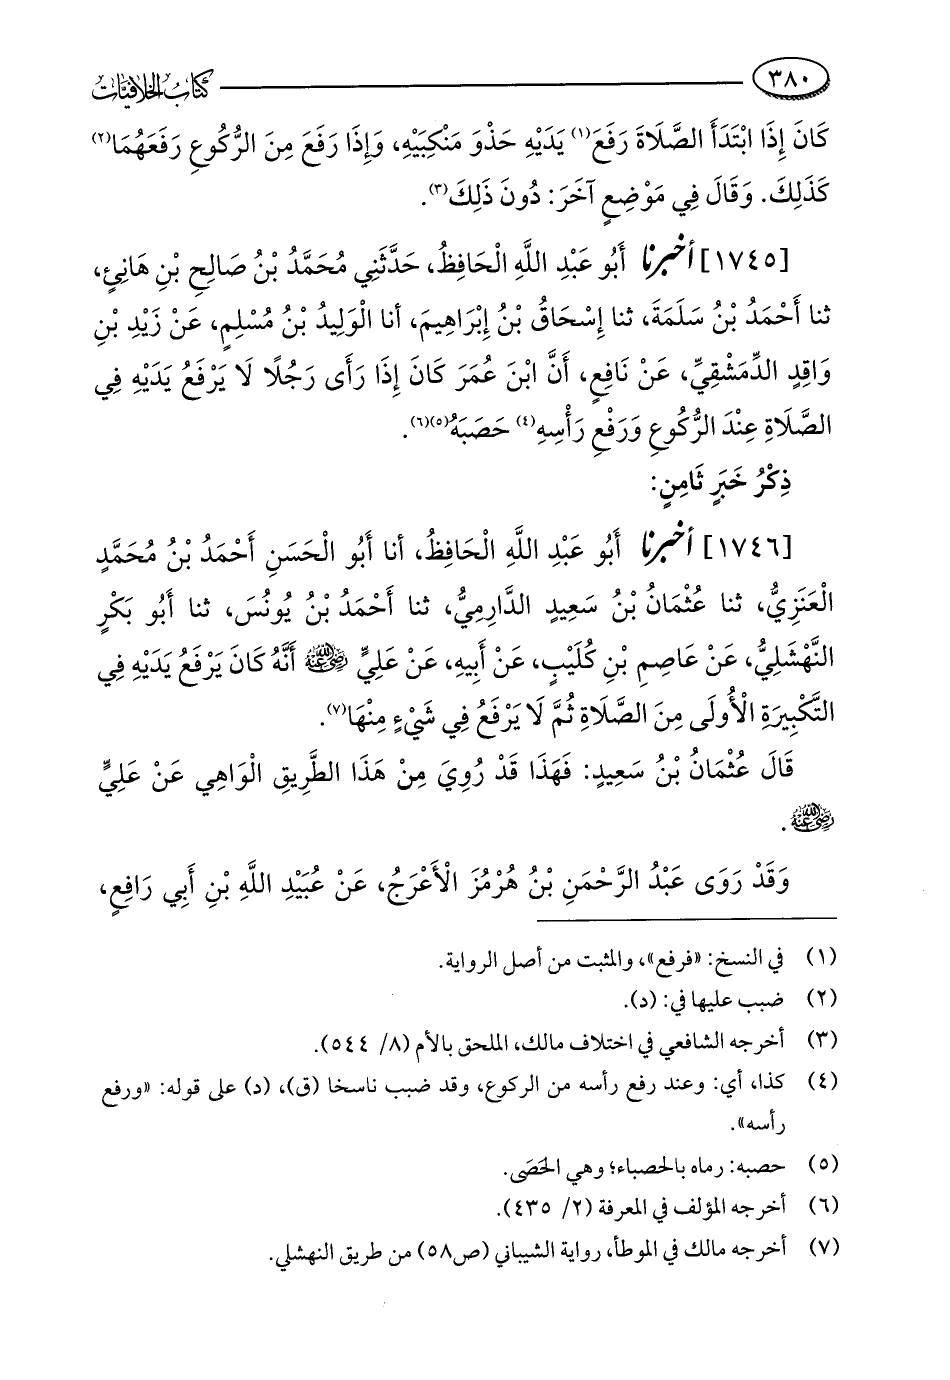 ٣٨٠ كتاب الخلافيات
كَانَ إِذَا ابْتَدَأَ الصَّلَاةَ رَفَعَ(١) يَدَيْهِ حَذْوَ مَنْكِبَيْهِ، وَإِذَا رَفَعَ مِنَ الرُّكُوعِ رَفَعَهُمَا(٢)
كَذَلِكَ. وَقَالَ فِي مَوْضِعٍ آخَرَ: دُونَ ذَلِكَ(٣).
[١٧٤٥] أخبرنا أَبُو عَبْدِ اللَّهِ الْحَافِظُ، حَدَّثَنِي مُحَمَّدُ بْنُ صَالِحِ بْنِ هَانِئٍ،
ثنا أَحْمَدُ بْنُ سَلَمَةَ، ثنا إِسْحَاقُ بْنُ إِبْرَاهِيمَ، أنا الْوَلِيدُ بْنُ مُسْلِمٍ، عَنْ زَيْدِ بْنِ
وَاقِدٍ الدِّمَشْقِيِّ، عَنْ نَافِعٍ، أَنَّ ابْنَ عُمَرَ كَانَ إِذَا رَأَى رَجُلًا لَا يَرْفَعُ يَدَيْهِ فِي
الصَّلَاةِ عِنْدَ الرُّكُوعِ وَرَفْعِ رَأْسِهِ(٤) حَصَبَهُ(٥)(٦).
ذِكْرُ خَبَرٍ ثَامِنٍ:
[١٧٤٦] أخبرنا أَبُو عَبْدِ اللَّهِ الْحَافِظُ، أنا أَبُو الْحَسَنِ أَحْمَدُ بْنُ مُحَمَّدٍ
الْعَنَزِيُّ، ثنا عُثْمَانُ بْنُ سَعِيدٍ الدَّارِمِيُّ، ثنا أَحْمَدُ بْنُ يُونُسَ، ثنا أَبُو بَكْرٍ
النَّهْشَلِيُّ، عَنْ عَاصِمِ بْنِ كُلَيْبٍ، عَنْ أَبِيهِ، عَنْ عَلِيٍّ رضي الله عنه أَنَّهُ كَانَ يَرْفَعُ يَدَيْهِ فِي
التَّكْبِيرَةِ الْأُولَى مِنَ الصَّلَاةِ ثُمَّ لَا يَرْفَعُ فِي شَيْءٍ مِنْهَا(٧).
قَالَ عُثْمَانُ بْنُ سَعِيدٍ: فَهَذَا قَدْ رُوِيَ مِنْ هَذَا الطَّرِيقِ الْوَاهِي عَنْ عَلِيٍّ
رضي الله عنه.
وَقَدْ رَوَى عَبْدُ الرَّحْمَنِ بْنُ هُرْمُزَ الْأَعْرَجُ، عَنْ عُبَيْدِ اللَّهِ بْنِ أَبِي رَافِعٍ،
(١) في النسخ: «فرفع»، والمثبت من أصل الرواية.
(٢) ضبب عليها في: (د).
(٣) أخرجه الشافعي في اختلاف مالك، الملحق بالأم (٨/ ٥٤٤).
(٤) كذا، أي: وعند رفع رأسه من الركوع، وقد ضبب ناسخا (ق)، (د) على قوله: «ورفع
رأسه».
(٥) حصبه: رماه بالحصباء؛ وهي الحَصَى.
(٦) أخرجه المؤلف في المعرفة (٢/ ٤٣٥).
(٧) أخرجه مالك في الموطأ، رواية الشيباني (ص٥٨) من طريق النهشلي.